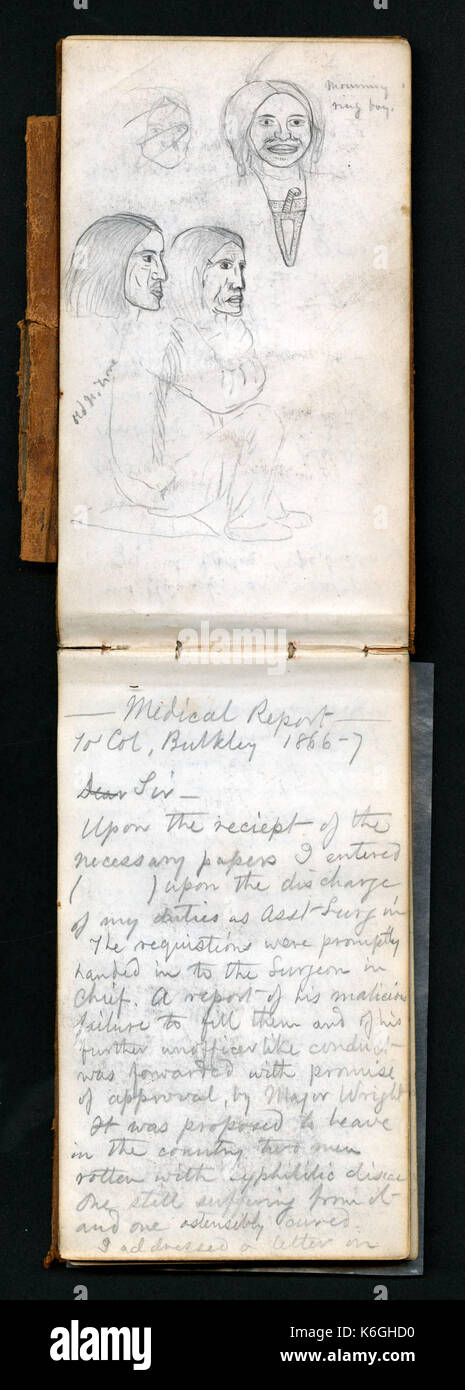 ring boy.
Old
— Medical Report —
To Col, Bulkley 1866-7
Dear Sir —
Upon the reciept of the
necessary papers I entered
( ) upon the discharge
of my duties as Asst-Surg in
The requistions were promptly
handed in to the Surgeon in
Chief. A report of his
failure to fill them and of his
further unofficerlike conduct
was forwarded with promise
of approval by Major Wright
It was proposed to leave
in the country two men
rotten with syphilitic
one still suffering from it
and one ostensibly cured.
I addressed a letter on
a
alamy
alamy
Image ID: K6GHD0
www.alamy.com